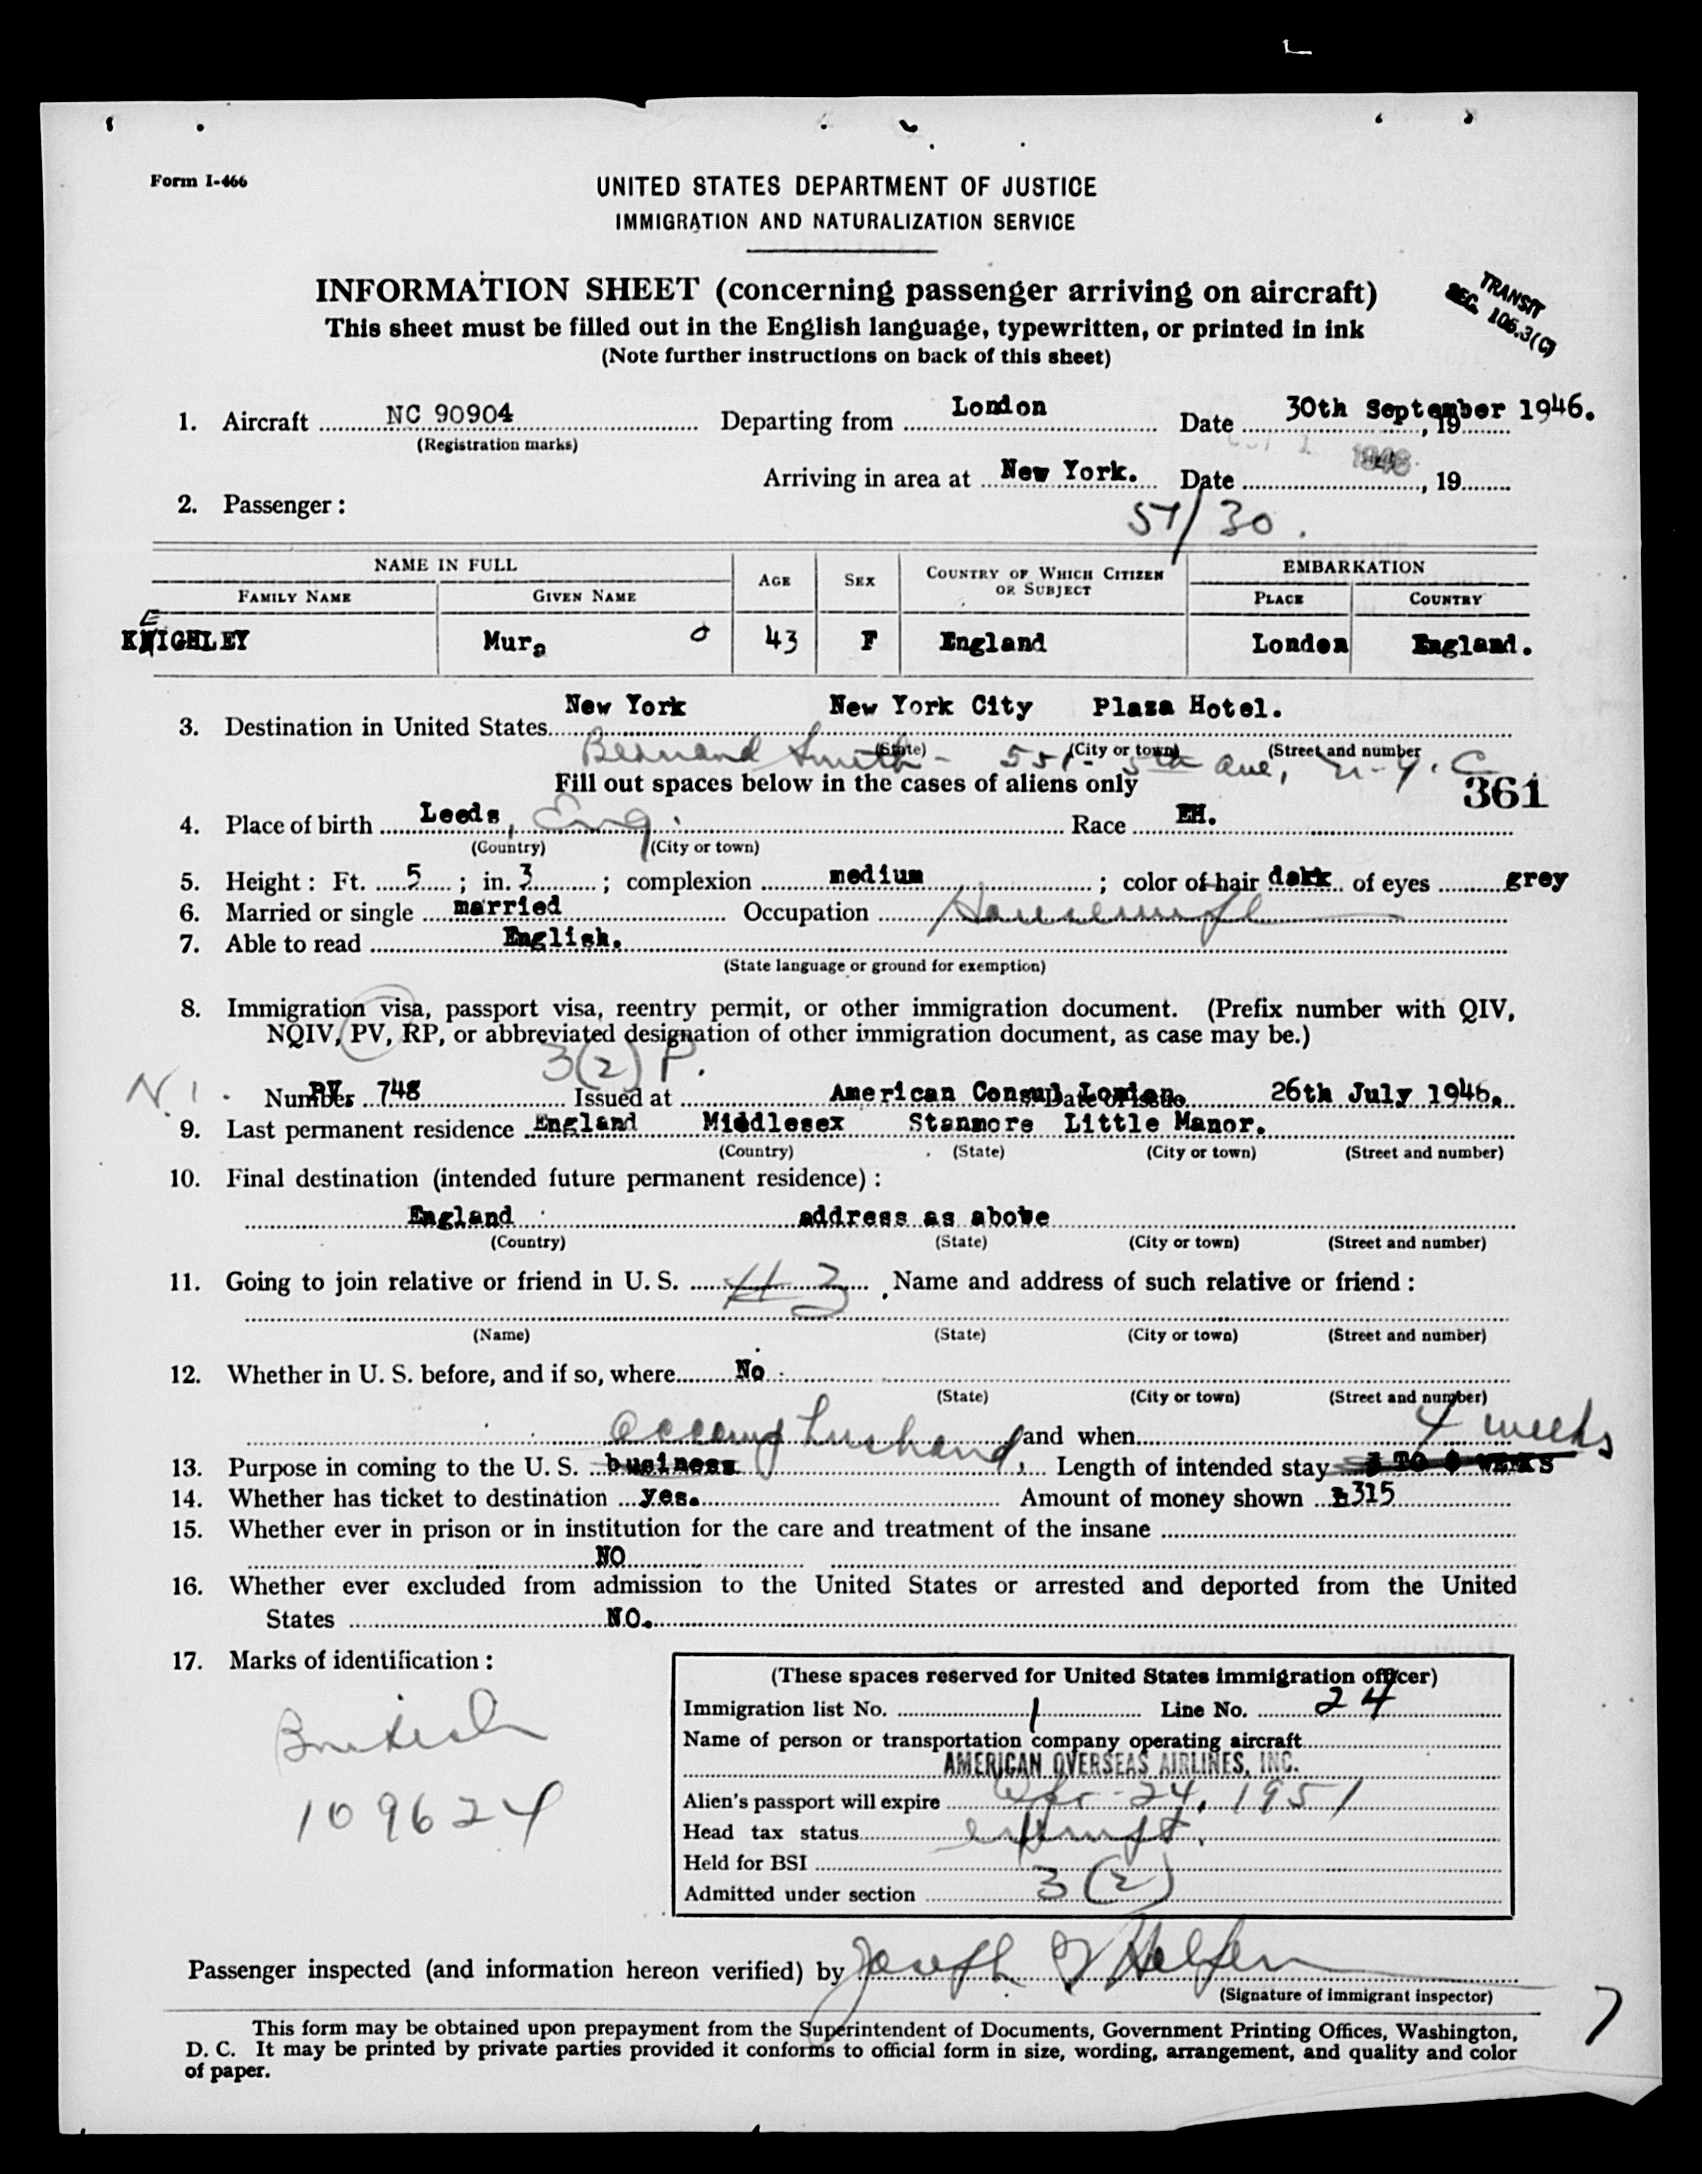 Form I-466
UNITED STATES DEPARTMENT OF JUSTICE
IMMIGRATION AND NATURALIZATION SERVICE
INFORMATION SHEET (concerning passenger arriving on aircraft)
This sheet must be filled out in the English language, typewritten, or printed in ink
(Note further instructions on back of this sheet)
TRANSIT
SEC. 106.3(C)
1. Aircraft NC 90904 Departing from London Date 30th September 1946. , 19
(Registration marks)
Arriving in area at New York. Date 1 1946 , 19
2. Passenger :
57/30.
NAME IN FULL AGE SEX COUNTRY OF WHICH CITIZEN OR SUBJECT EMBARKATION
FAMILY NAME GIVEN NAME PLACE COUNTRY
E
KNIGHLEY Mura O 43 F England London England.
New York New York City Plaza Hotel.
3. Destination in United States
(State) (City or town) (Street and number
Bernard Smith - 551 - 5th ave, N.Y.C
Fill out spaces below in the cases of aliens only
361
4. Place of birth Leeds, Eng. Race EH.
(Country) (City or town)
5. Height : Ft. 5 ; in. 3 ; complexion medium ; color of hair dark of eyes grey
6. Married or single married Occupation Housewife
7. Able to read English.
(State language or ground for exemption)
8. Immigration visa, passport visa, reentry permit, or other immigration document. (Prefix number with QIV,
NQIV, PV, RP, or abbreviated designation of other immigration document, as case may be.)
3(2) P.
N.I. Number PV. 748 Issued at American Consul London. Date of issue 26th July 1946.
9. Last permanent residence England Middlesex Stanmore Little Manor.
(Country) (State) (City or town) (Street and number)
10. Final destination (intended future permanent residence) :
England address as above
(Country) (State) (City or town) (Street and number)
11. Going to join relative or friend in U. S. # 3 Name and address of such relative or friend :
(Name) (State) (City or town) (Street and number)
12. Whether in U. S. before, and if so, where No
(State) (City or town) (Street and number)
Accomp husband and when 4 weeks
13. Purpose in coming to the U. S. business Length of intended stay TO WEEKS
14. Whether has ticket to destination yes. Amount of money shown 315
15. Whether ever in prison or in institution for the care and treatment of the insane
NO
16. Whether ever excluded from admission to the United States or arrested and deported from the United
States NO.
17. Marks of identification :
British
109624
(These spaces reserved for United States immigration officer)
Immigration list No. 1 Line No. 24
Name of person or transportation company operating aircraft
AMERICAN OVERSEAS AIRLINES, INC.
Alien's passport will expire Apr-24, 1951
Head tax status exempt.
Held for BSI
Admitted under section 3(2)
Passenger inspected (and information hereon verified) by Joseph Helfen
(Signature of immigrant inspector)
7
This form may be obtained upon prepayment from the Superintendent of Documents, Government Printing Offices, Washington,
D. C. It may be printed by private parties provided it conforms to official form in size, wording, arrangement, and quality and color
of paper.